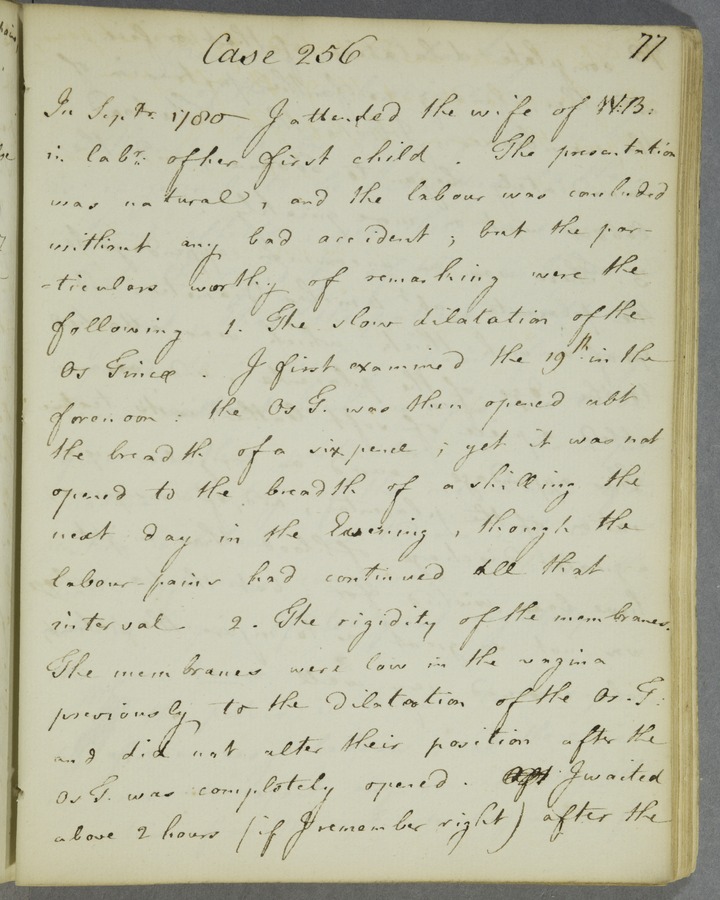 77
Case 256
In Septr. 1780 I attended the wife of W:B:
in labr. of her first child . The presentation
was natural, and the labour was concluded
without any bad accident ; but the par-
-ticulars worthy of remarking were the
following 1. The slow dilatation of the
Os Tincæ . I first examined the 19th in the
forenoon : the Os T. was then opened abt
the breadth of a six pence ; yet it was not
opened to the breadth of a shilling the
next day in the Evening , though the
labour-pains had continued all that
interval 2. The rigidity of the membranes.
The membranes were low in the vagina
previously to the dilatation of the Os. T:
and did not alter their position after the
Os T. was completely opened . I waited
above 2 hours (if I remember right) after the